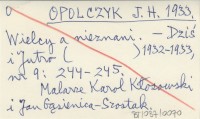 O OPOLCZYK J. H. 1933.
Wielcy a nieznani. – Dziś
i Jutro ( ) 1932-1933,
nr 9: 244-245.
Malarze Karol Kłosowski
i Jan Gąsienica-Szostak.